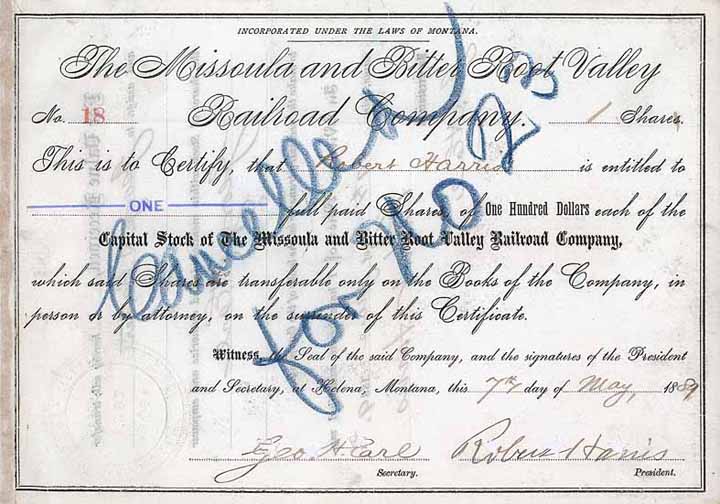 INCORPORATED UNDER THE LAWS OF MONTANA.
The Missoula and Bitter Root Valley
No. 18 Railroad Company. 1 Shares.
This is to Certify, that Robert Harris is entitled to
ONE full paid Shares, of One Hundred Dollars each of the
Capital Stock of The Missoula and Bitter Root Valley Railroad Company,
which said Shares are transferable only on the Books of the Company, in
person or by attorney, on the surrender of this Certificate.
Witness, the Seal of the said Company, and the signatures of the President
and Secretary, at Helena, Montana, this 7th day of May, 1889
Geo. H. Earl Robert Harris
Secretary. President.
Cancelled
for No 23